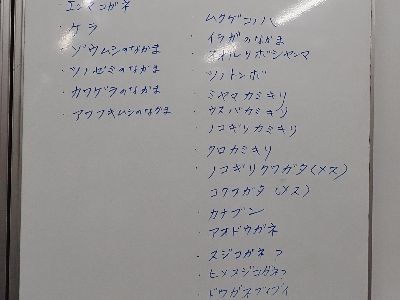 ・エンマコガネ
・ケラ
・ゾウムシのなかま
・ツノゼミのなかま
・カワゲラのなかま
・アワフキムシのなかま
ムクゲコノハ
・イラガのなかま
・オオルリボシヤンマ
ツノトンボ
・ミヤマカミキリ
・ウスバカミキリ
・ノコギリカミキリ
・クロカミキリ
・ノコギリクワガタ(メス)
・コクワガタ(メス)
・カナブン
・アオドウガネ
・スジコガネ?
・ヒメスジコガネ?
・ドウガネブイブイ